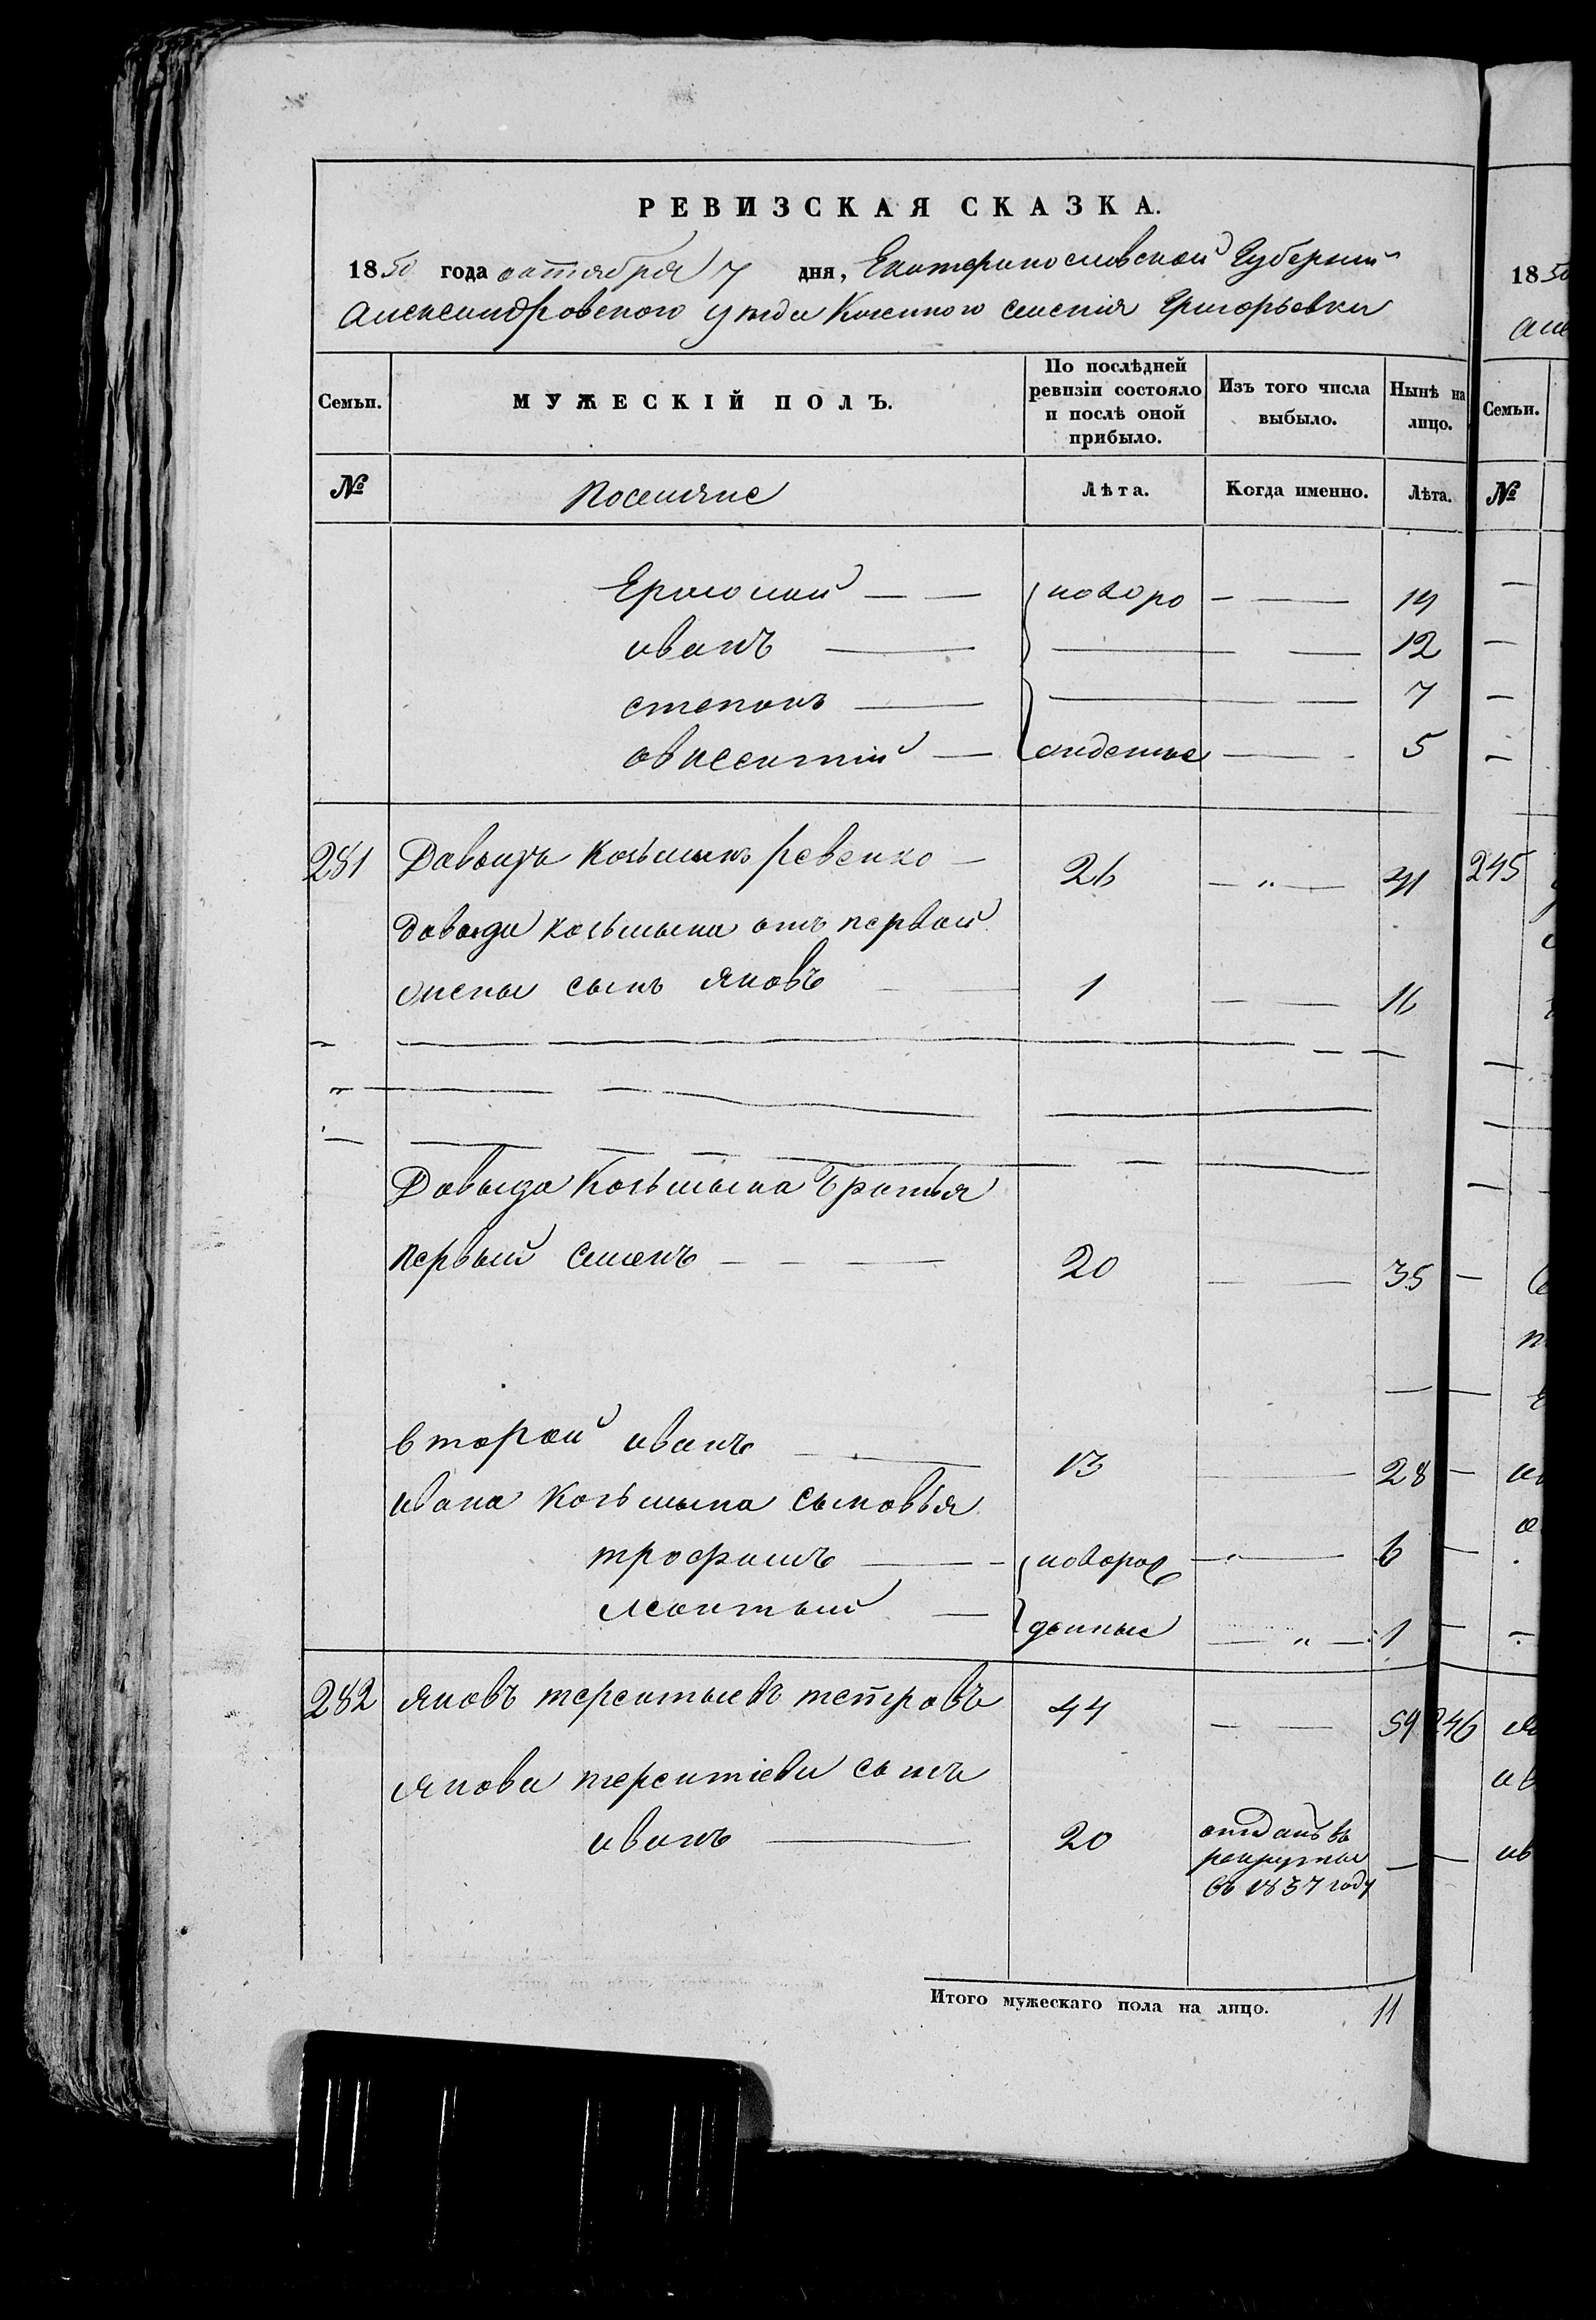 РЕВИЗСКАЯ СКАЗКА.
1850 года октября 7 дня, Екатеринославской Губерніи
Александровского уезда Казенного селенія Григорьевки
Семьи. МУЖЕСКІЙ ПОЛЪ. По послѣдней ревизіи состояло и послѣ оной прибыло. Изъ того числа выбыло. Нынѣ на лицо.
№ Поселяне Лѣта. Когда именно. Лѣта.
Ермолай — — новоро — — 14
иванъ — — — 12
степанъ — — — 7
авксентій — жденные — 5
281 Давыдъ Козьминъ ревенко — 26 — " — 41
давыда козьмина отъ первой
жены сынъ яковъ — 1 — — 16
Давыда Козьмина братья
первый Семенъ — — — 20 — — 35
второй иванъ — 13 — 28
ивана Козьмина сыновья
трофимъ — новорож — " — 6
леонтый — денные — " — 1
282 яковъ терентьевъ тетровъ 44 — — 59
якова терентіева сынъ
иванъ — 20 отданъ въ
рекруты —
въ 1837 году
Итого мужескаго пола на лицо. 11
1850
Семьи.
№
245
246